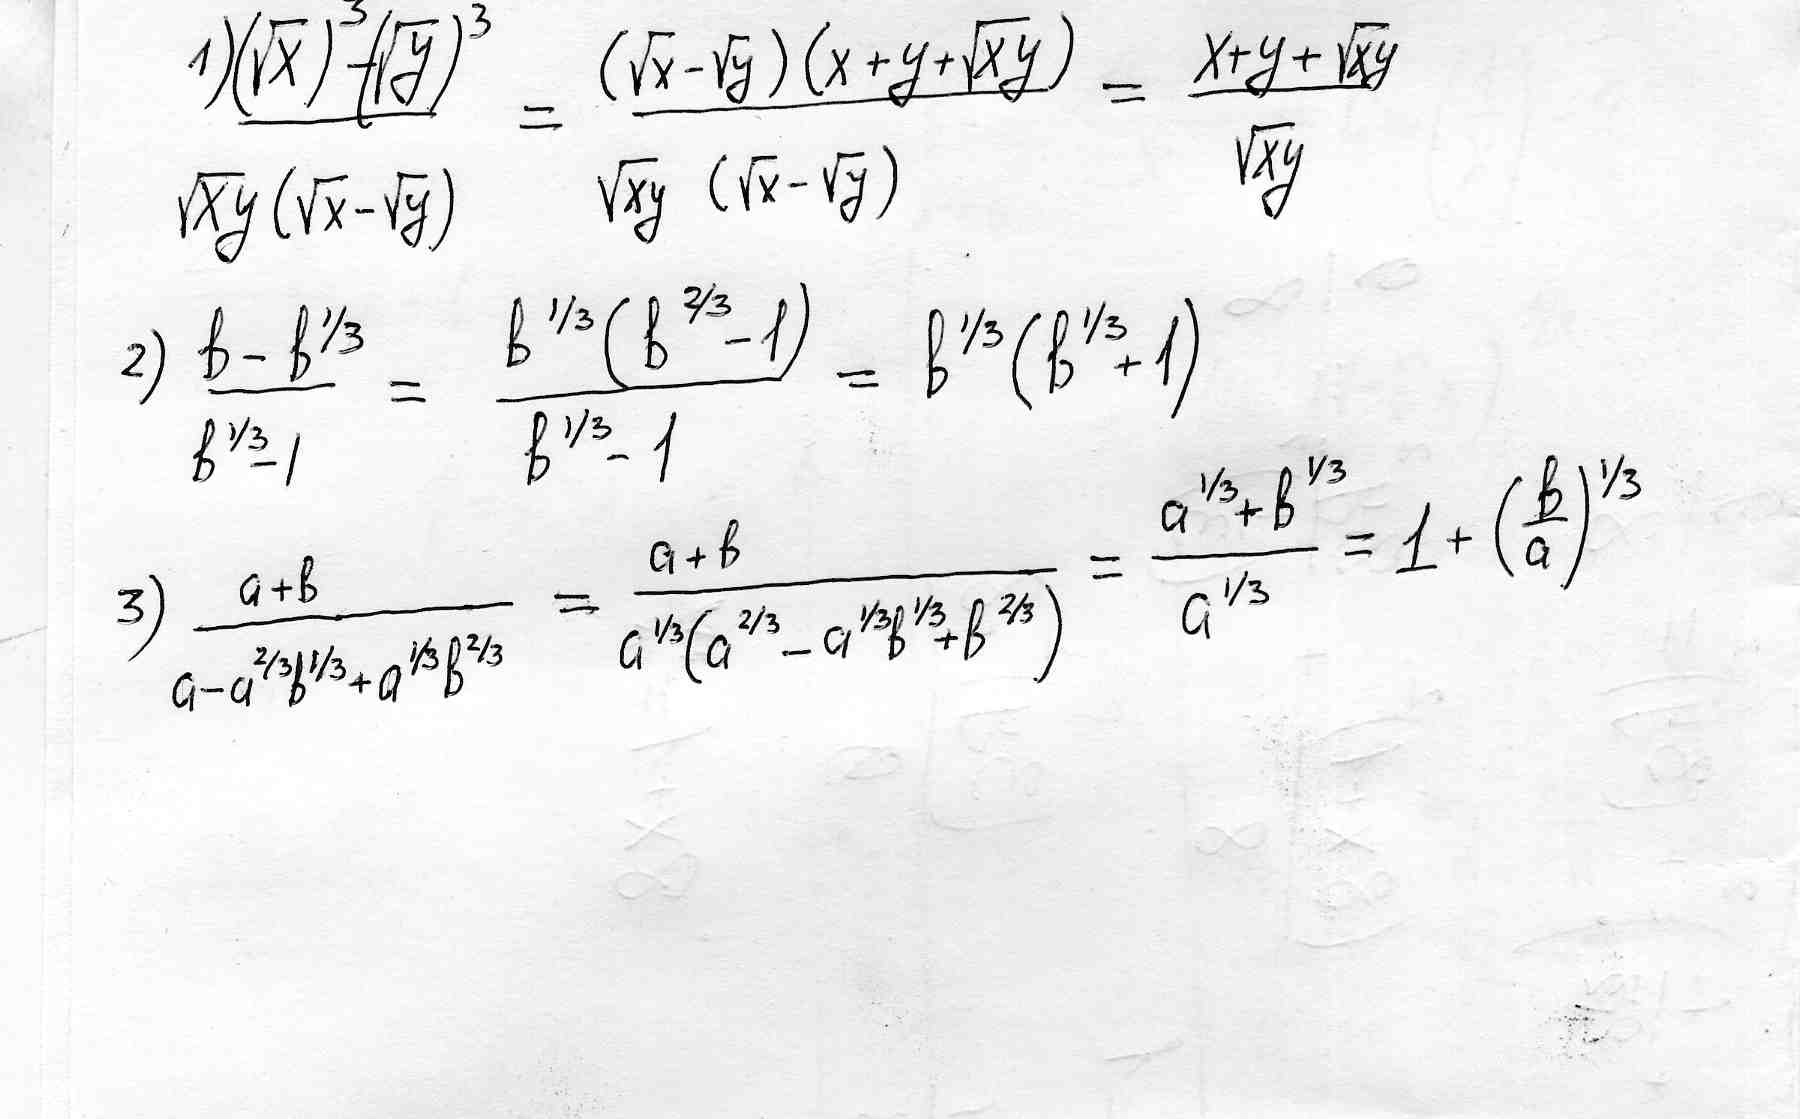 1) ((√x)³ - (√y)³) / (√xy (√x - √y)) = ((√x - √y)(x + y + √xy)) / (√xy (√x - √y)) = (x + y + √xy) / √xy
2) (b - b^1/3) / (b^1/3 - 1) = (b^1/3 (b^2/3 - 1)) / (b^1/3 - 1) = b^1/3 (b^1/3 + 1)
3) (a + b) / (a - a^2/3 b^1/3 + a^1/3 b^2/3) = (a + b) / (a^1/3 (a^2/3 - a^1/3 b^1/3 + b^2/3)) = (a^1/3 + b^1/3) / a^1/3 = 1 + (b/a)^1/3